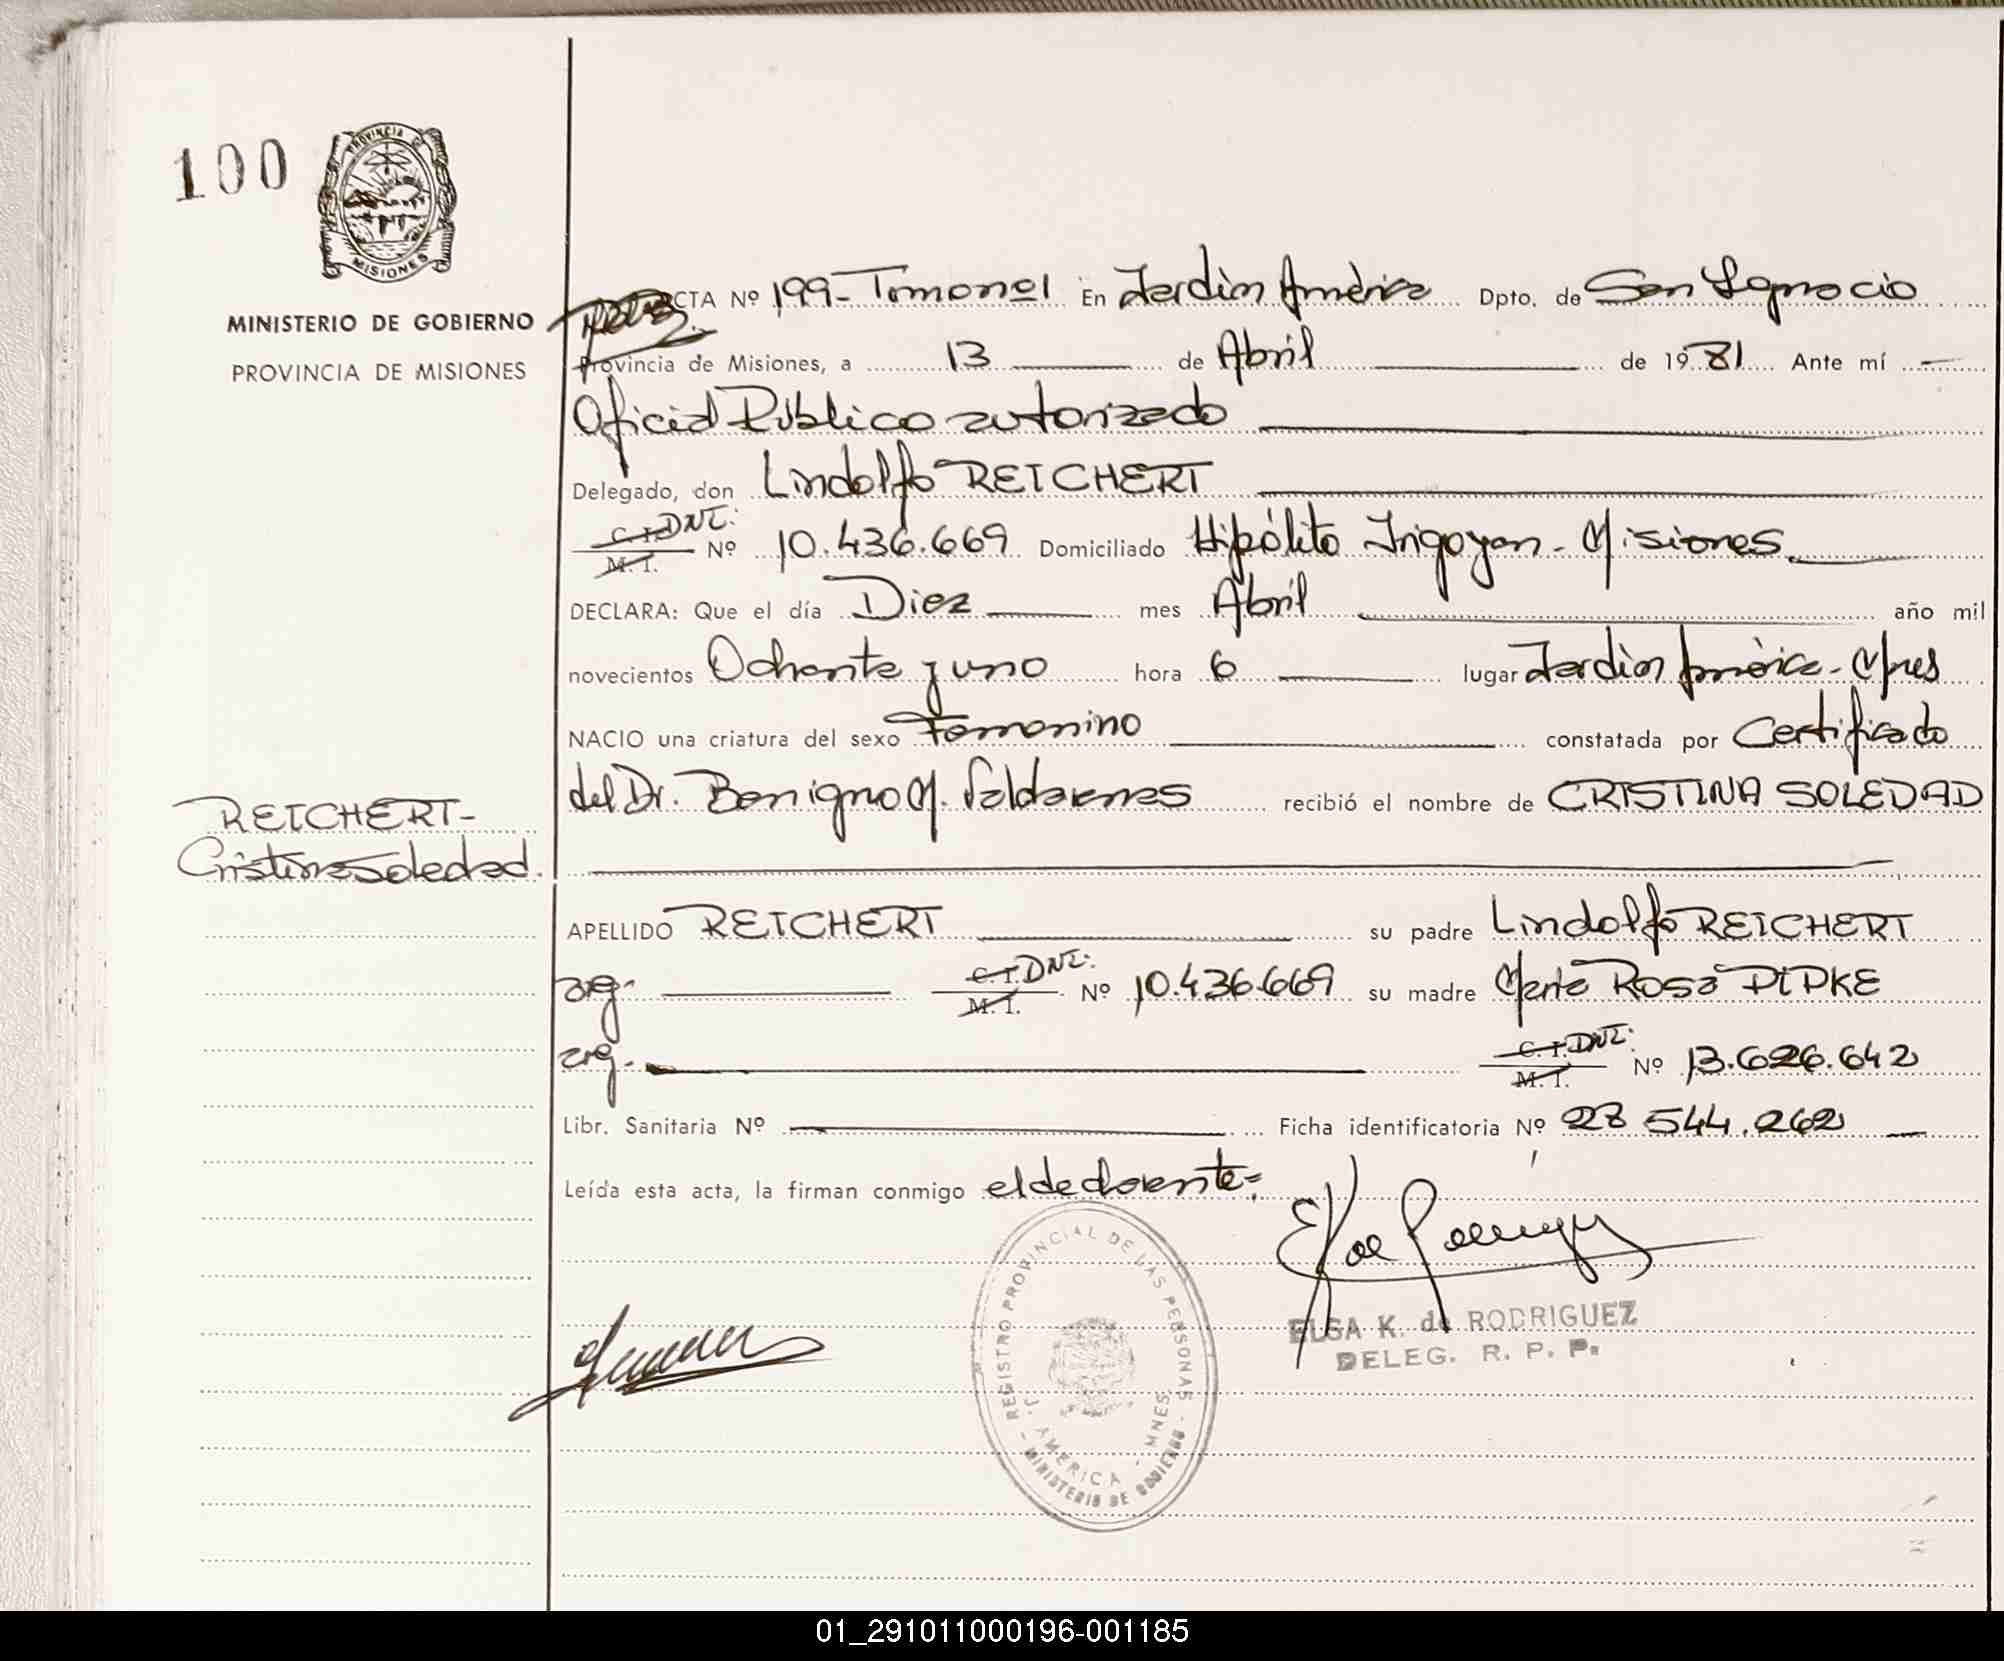 100
PROVINCIA DE
MISIONES
MINISTERIO DE GOBIERNO
PROVINCIA DE MISIONES
ACTA Nº 199- Tomo nº1 En Jardín América Dpto. de San Ignacio
Provincia de Misiones, a 13 de Abril de 1981 Ante mí
Oficial Público autorizado
Delegado, don Lindolfo REICHERT
C. I. DNI.
M. I. Nº 10.436.669 Domiciliado Hipólito Irigoyen - Misiones
DECLARA: Que el día Diez mes Abril año mil
novecientos Ochenta y uno hora 6 lugar Jardín América - Mnes
NACIO una criatura del sexo Femenino constatada por Certificado
del Dr. Benigno M. recibió el nombre de CRISTINA SOLEDAD
REICHERT-
Cristina Soledad.
APELLIDO REICHERT su padre Lindolfo REICHERT
arg. C. I. DNI. M. I. Nº 10.436.669 su madre Marta Rosa PIPKE
arg. C. I. DNI. M. I. Nº 13.626.642
Libr. Sanitaria Nº Ficha identificatoria Nº 28 544.262
Leída esta acta, la firman conmigo el declarante=
REGISTRO PROVINCIAL DE LAS PERSONAS
J. AMERICA - MNES.
MINISTERIO DE GOBIERNO
ELSA K. de RODRIGUEZ
DELEG. R. P. P.
01_291011000196-001185